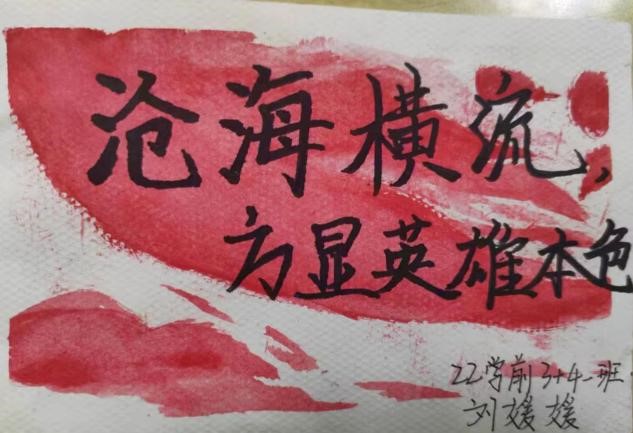 沧海横流,
方显英雄本色
22学前3+4一班
刘媛媛